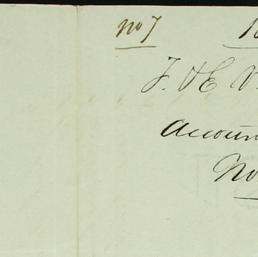 No 7
F. & E.
Accoun
No